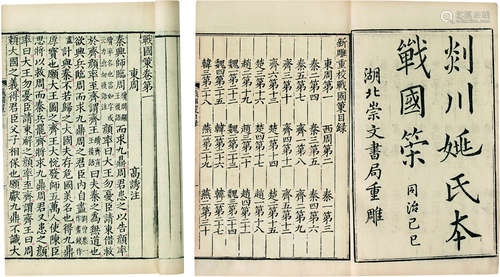 剡川姚氏本
戰國策
同治己巳
湖北崇文書局重雕
新雕重校戰國策目錄
東周第一 西周第二 秦一第三
秦二第四 秦三第五 秦四第六
秦五第七 齊一第八 齊二第九
齊三第十 齊四第十一 齊五第十二
齊六第十三 楚一第十四 楚二第十五
楚三第十六 楚四第十七 趙一第十八
趙二第十九 趙三第二十 趙四第二十一
魏一第二十二 魏二第二十三 魏三第二十四
魏四第二十五 韓一第二十六 韓二第二十七
韓三第二十八 燕一第二十九 燕二第三十
戰國策卷第一
東周 高誘注
秦興師臨周而求九鼎周君患之以告顏率
顏率曰大王勿憂臣請東借救
於齊顏率至齊謂齊王曰夫秦之為無道也
欲興兵臨周而求九鼎周之君臣內自畫
計與秦不若歸之大國夫存危國美名也得九鼎
厚寶也願大王圖之齊王大悅發師五萬人使陳臣
思將以救周而秦兵罷齊將求九鼎周君又患之顏
率曰大王勿憂臣請東解之顏率至齊謂齊王曰周
賴大國之義得君臣父子相保也願獻九鼎不識大